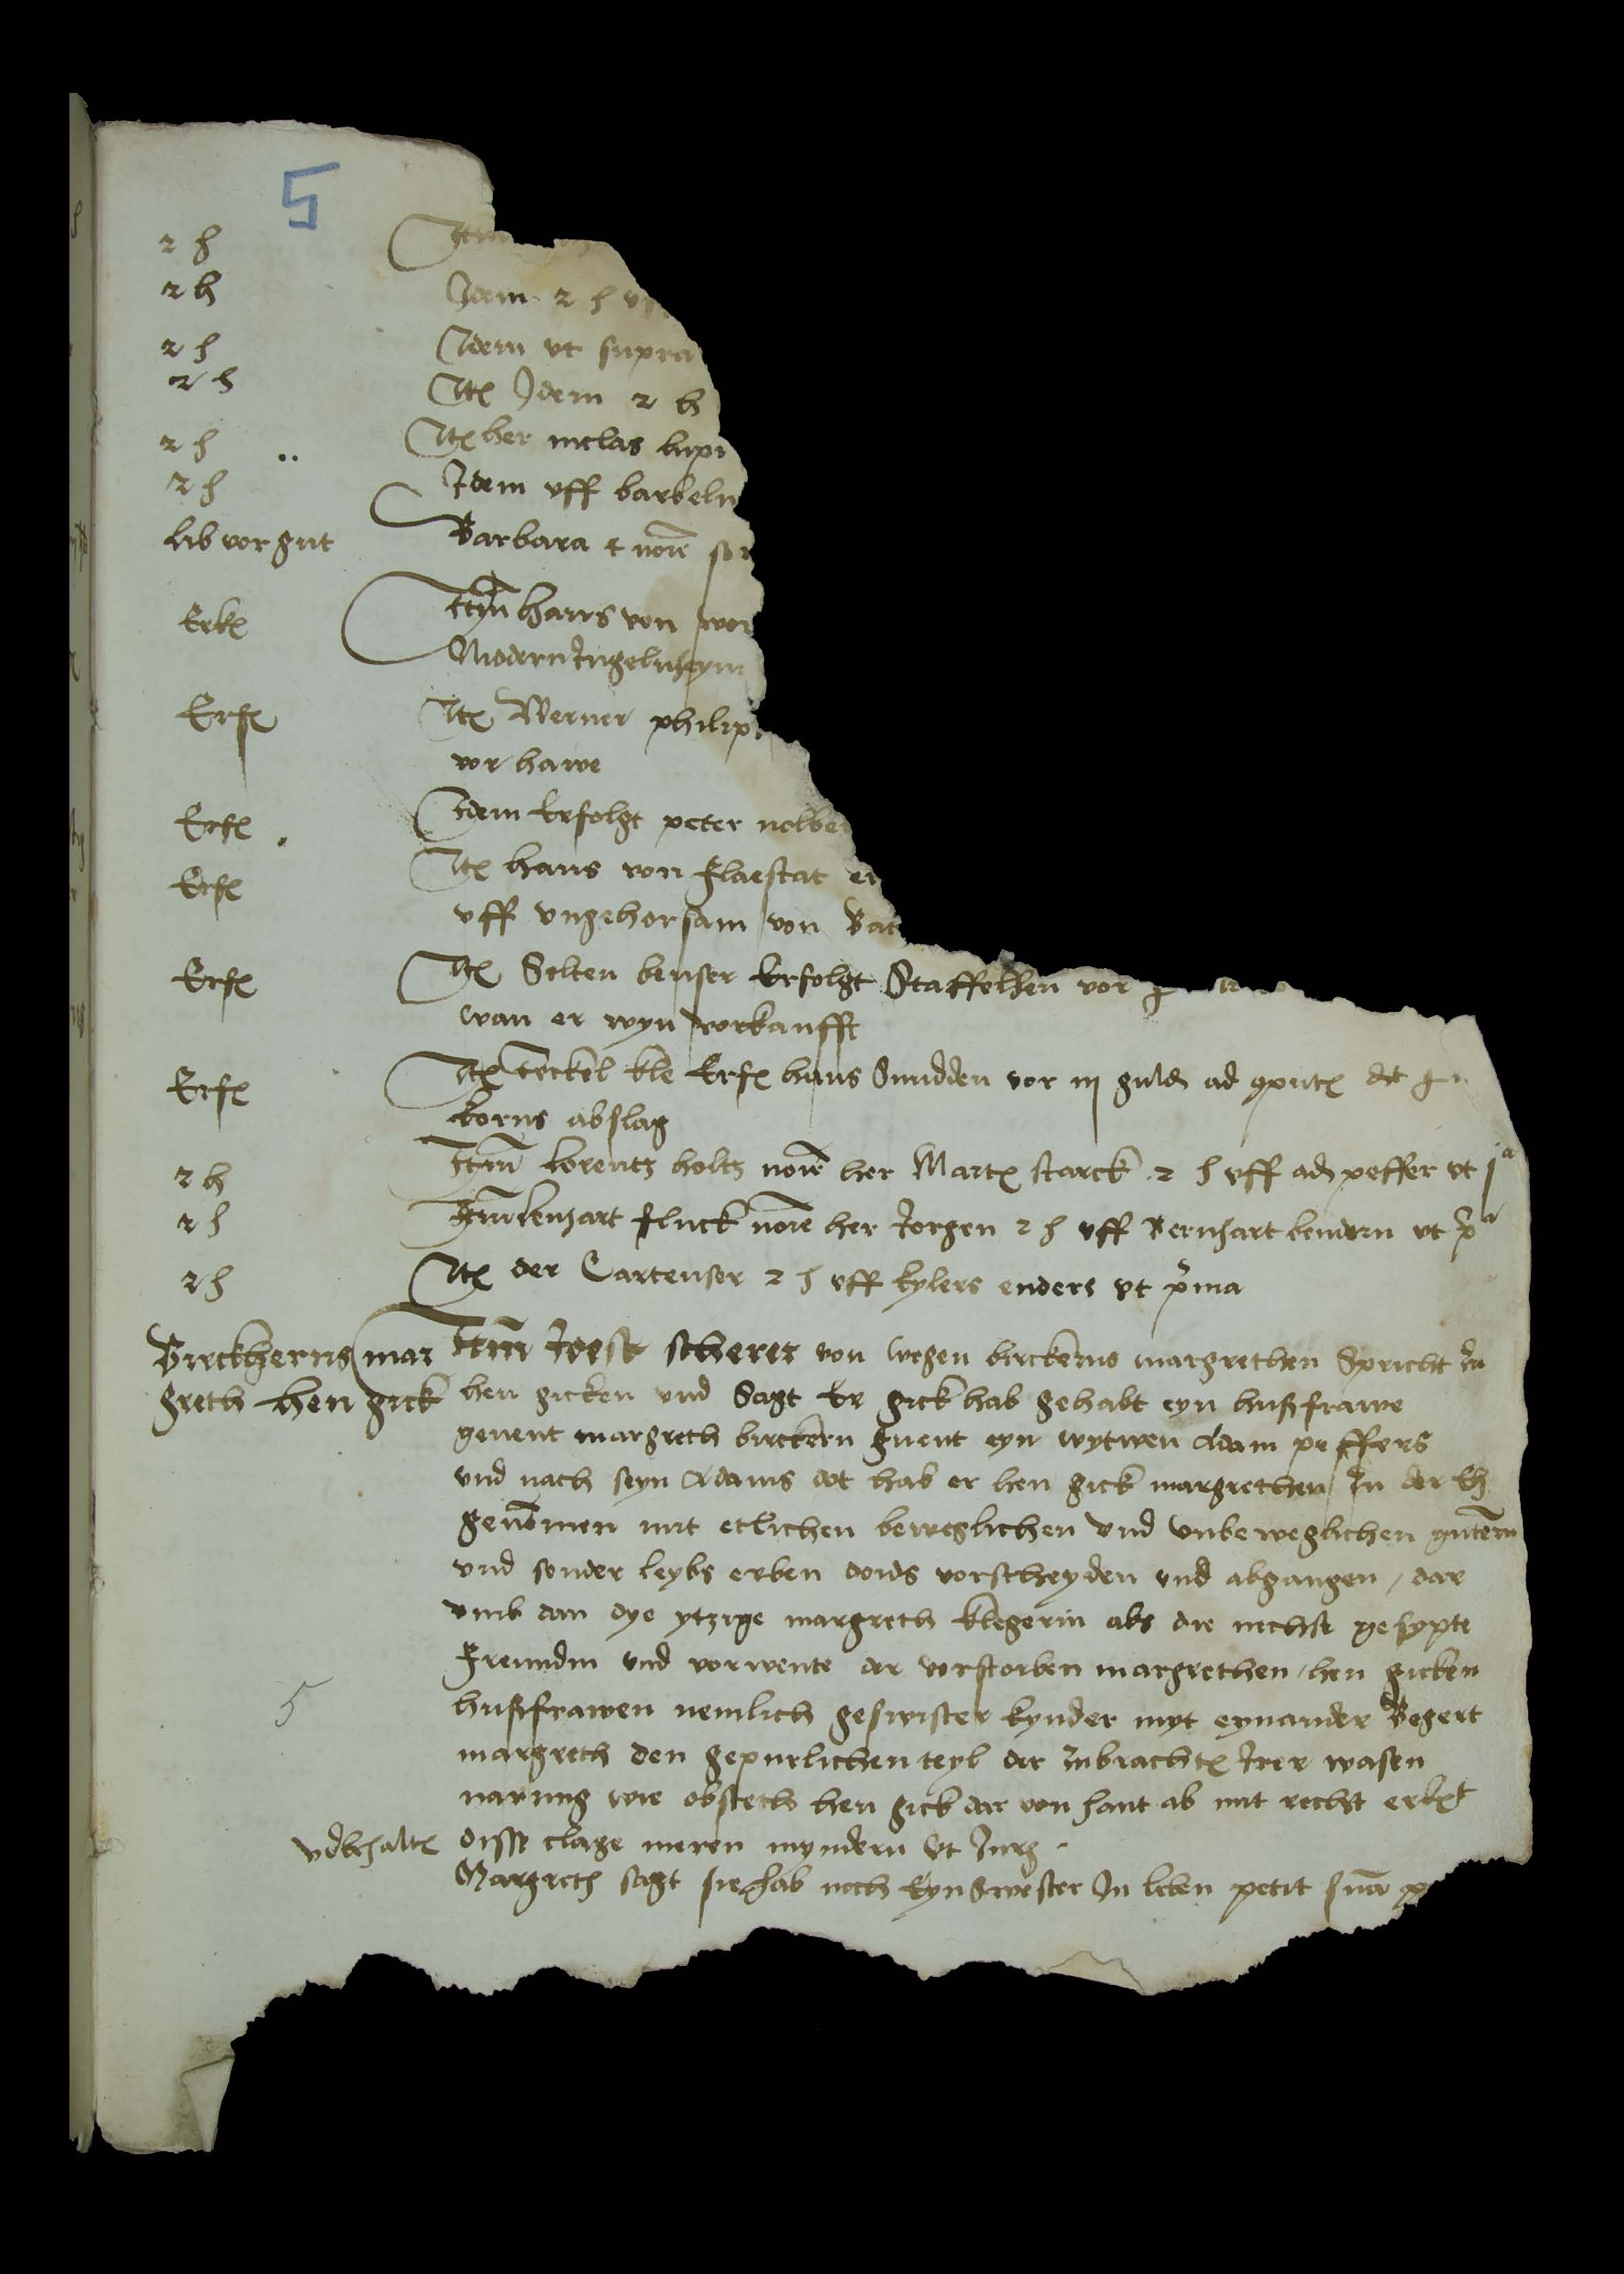 5
2 h
2 h Idem 2 h
2 h Idem ut supra
2 h Itē Idem 2 h
2 h Itē her niclas lupi
2 h Idem uff barbeln
lib vor gut Barbara
Erkē Itm̄ hans von wor
Nidern Ingelnheym
Erfē Itē Werner philip
vor hawe
Erfē Idem Erfolgt peter
Erfē Itē hans von flaestat er
uff ungehorsam von Bac
Erfē Itē Selten benser Erfolgt Staffelhen vor
wan er wyn vorkaufft
Erfē Itē kle Erfē hans Snudden vor iij guld ad
korns abslag
2 h Itm̄ Lorentz holtz noīe her Martē starck 2 h uff ad peffer ut jᵃ
2 h Itm̄ lenhart fluck noīe her Jorgen 2 h uff Bernhart bendern ut pᵃ
2 h Itē der Cartenser 2 h uff kylers enders ut p̄ma
Birckhern̄s mar Itm̄ Joest scherer von wegen birckerns margrethen Spricht zu
greth hen gick hen gicken und Sagt Er gick hab gehabt eyn hußfrawe
genent margreth birckern gnent eyn wytwen Adam peffers
und nach seyn Adams dot hab er hen gick margrethen In der Eh
genōmen mit etlichen beweglichen und unbeweglichen gutern̄
und sonder leybs erben doids vorscheyden und abgangen / dar
umb dan dye ytzige margreth klegerin als die nechst gesypte
Freundin und vorwente der vorstorben margrethen / hen gicken
5 hußfrawen nemlich geswister kynder myt eynander Begert
margreth den gepurlichen teyl der Inbrachtē Irer wasen
narung wie obsteth hen gick dar von hant ab mit recht erkēt
udbehaltē disse clage meren myndern Ut Jurz
Margreth sagt sie hab noch Eyn Swester In leben petit